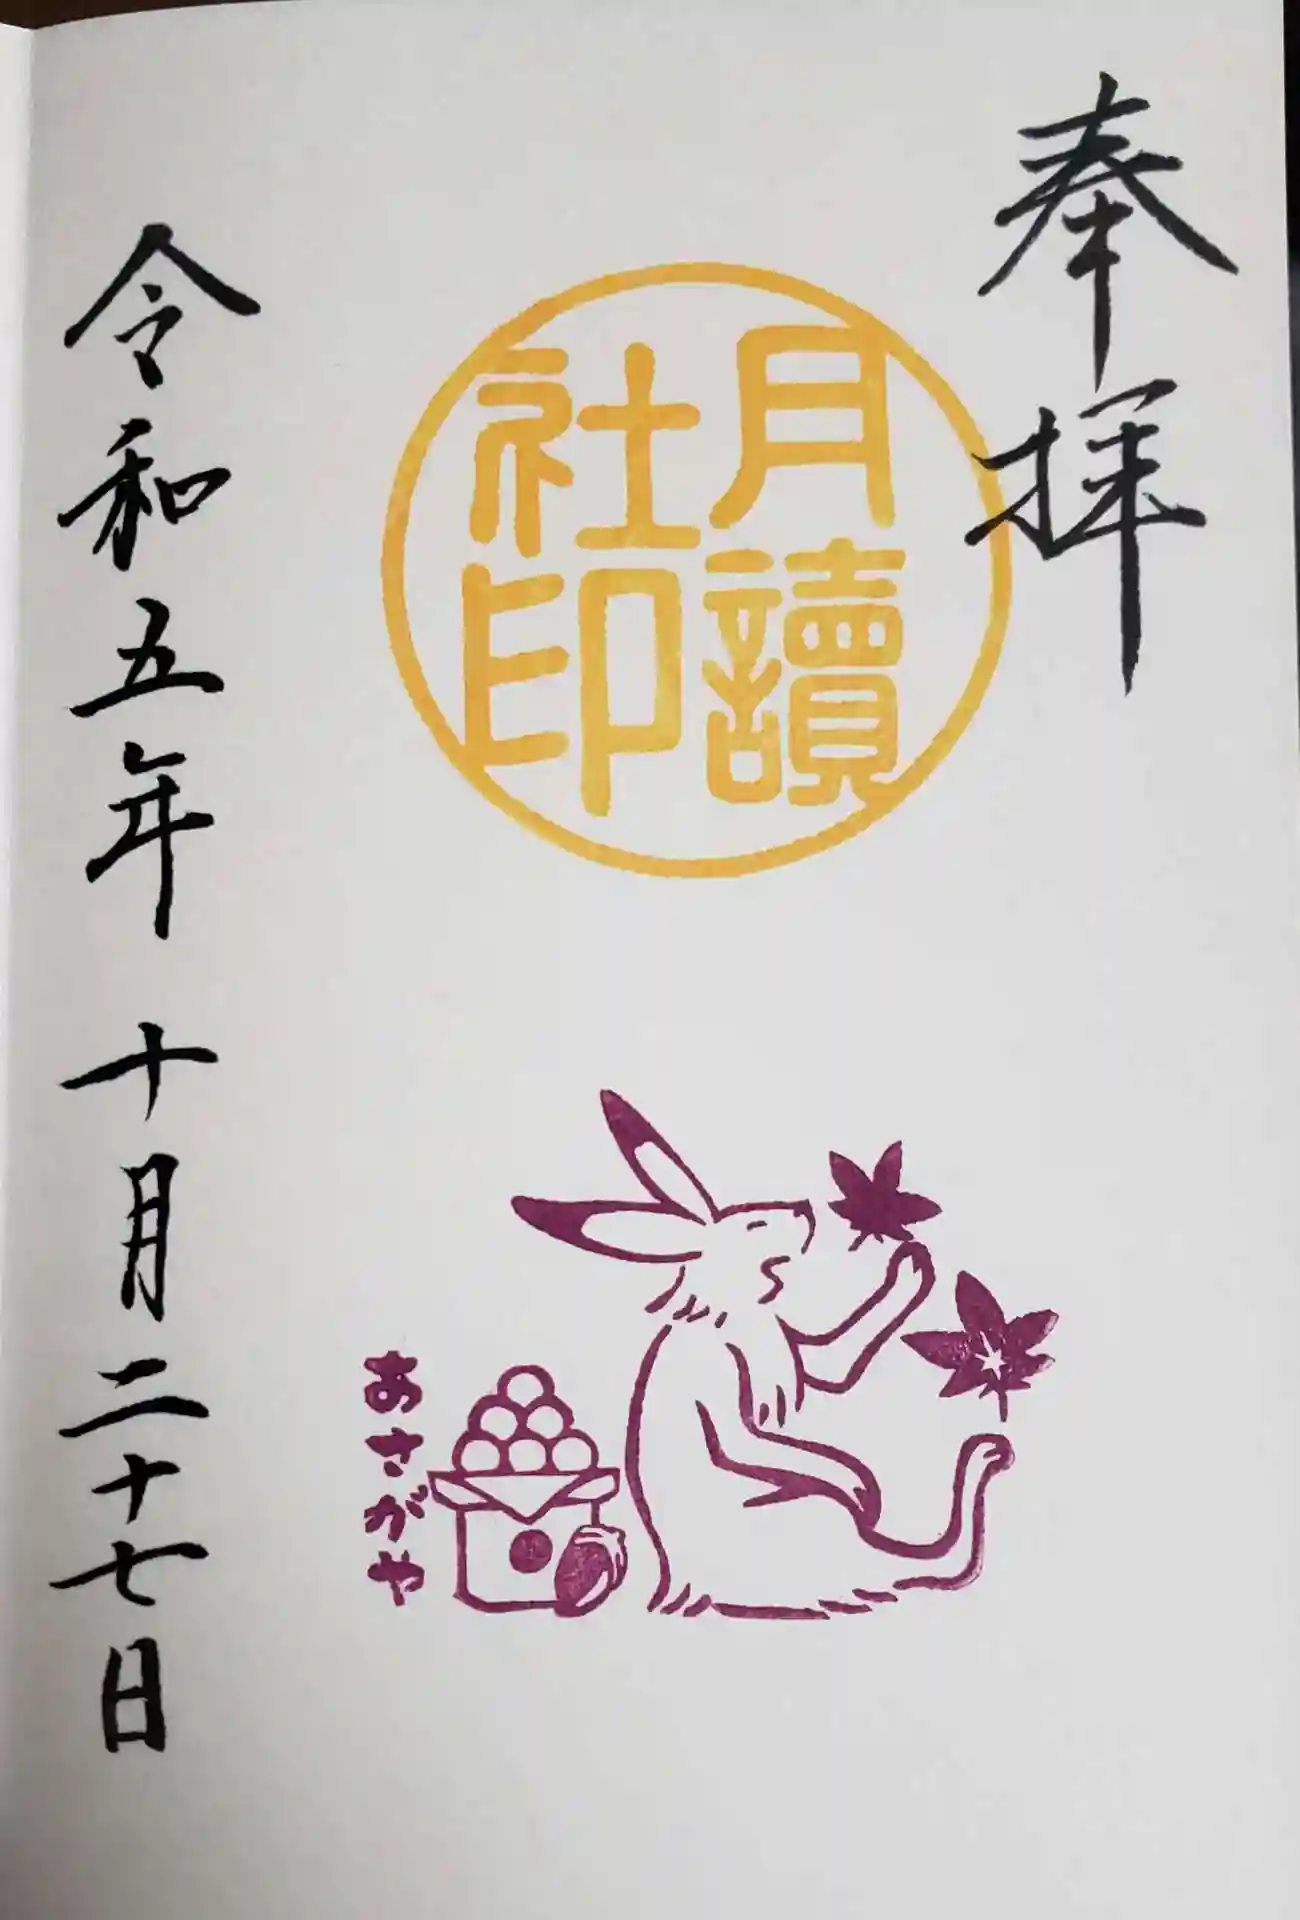 奉拝
月讀
社印
あさがや
令和五年十月二十七日